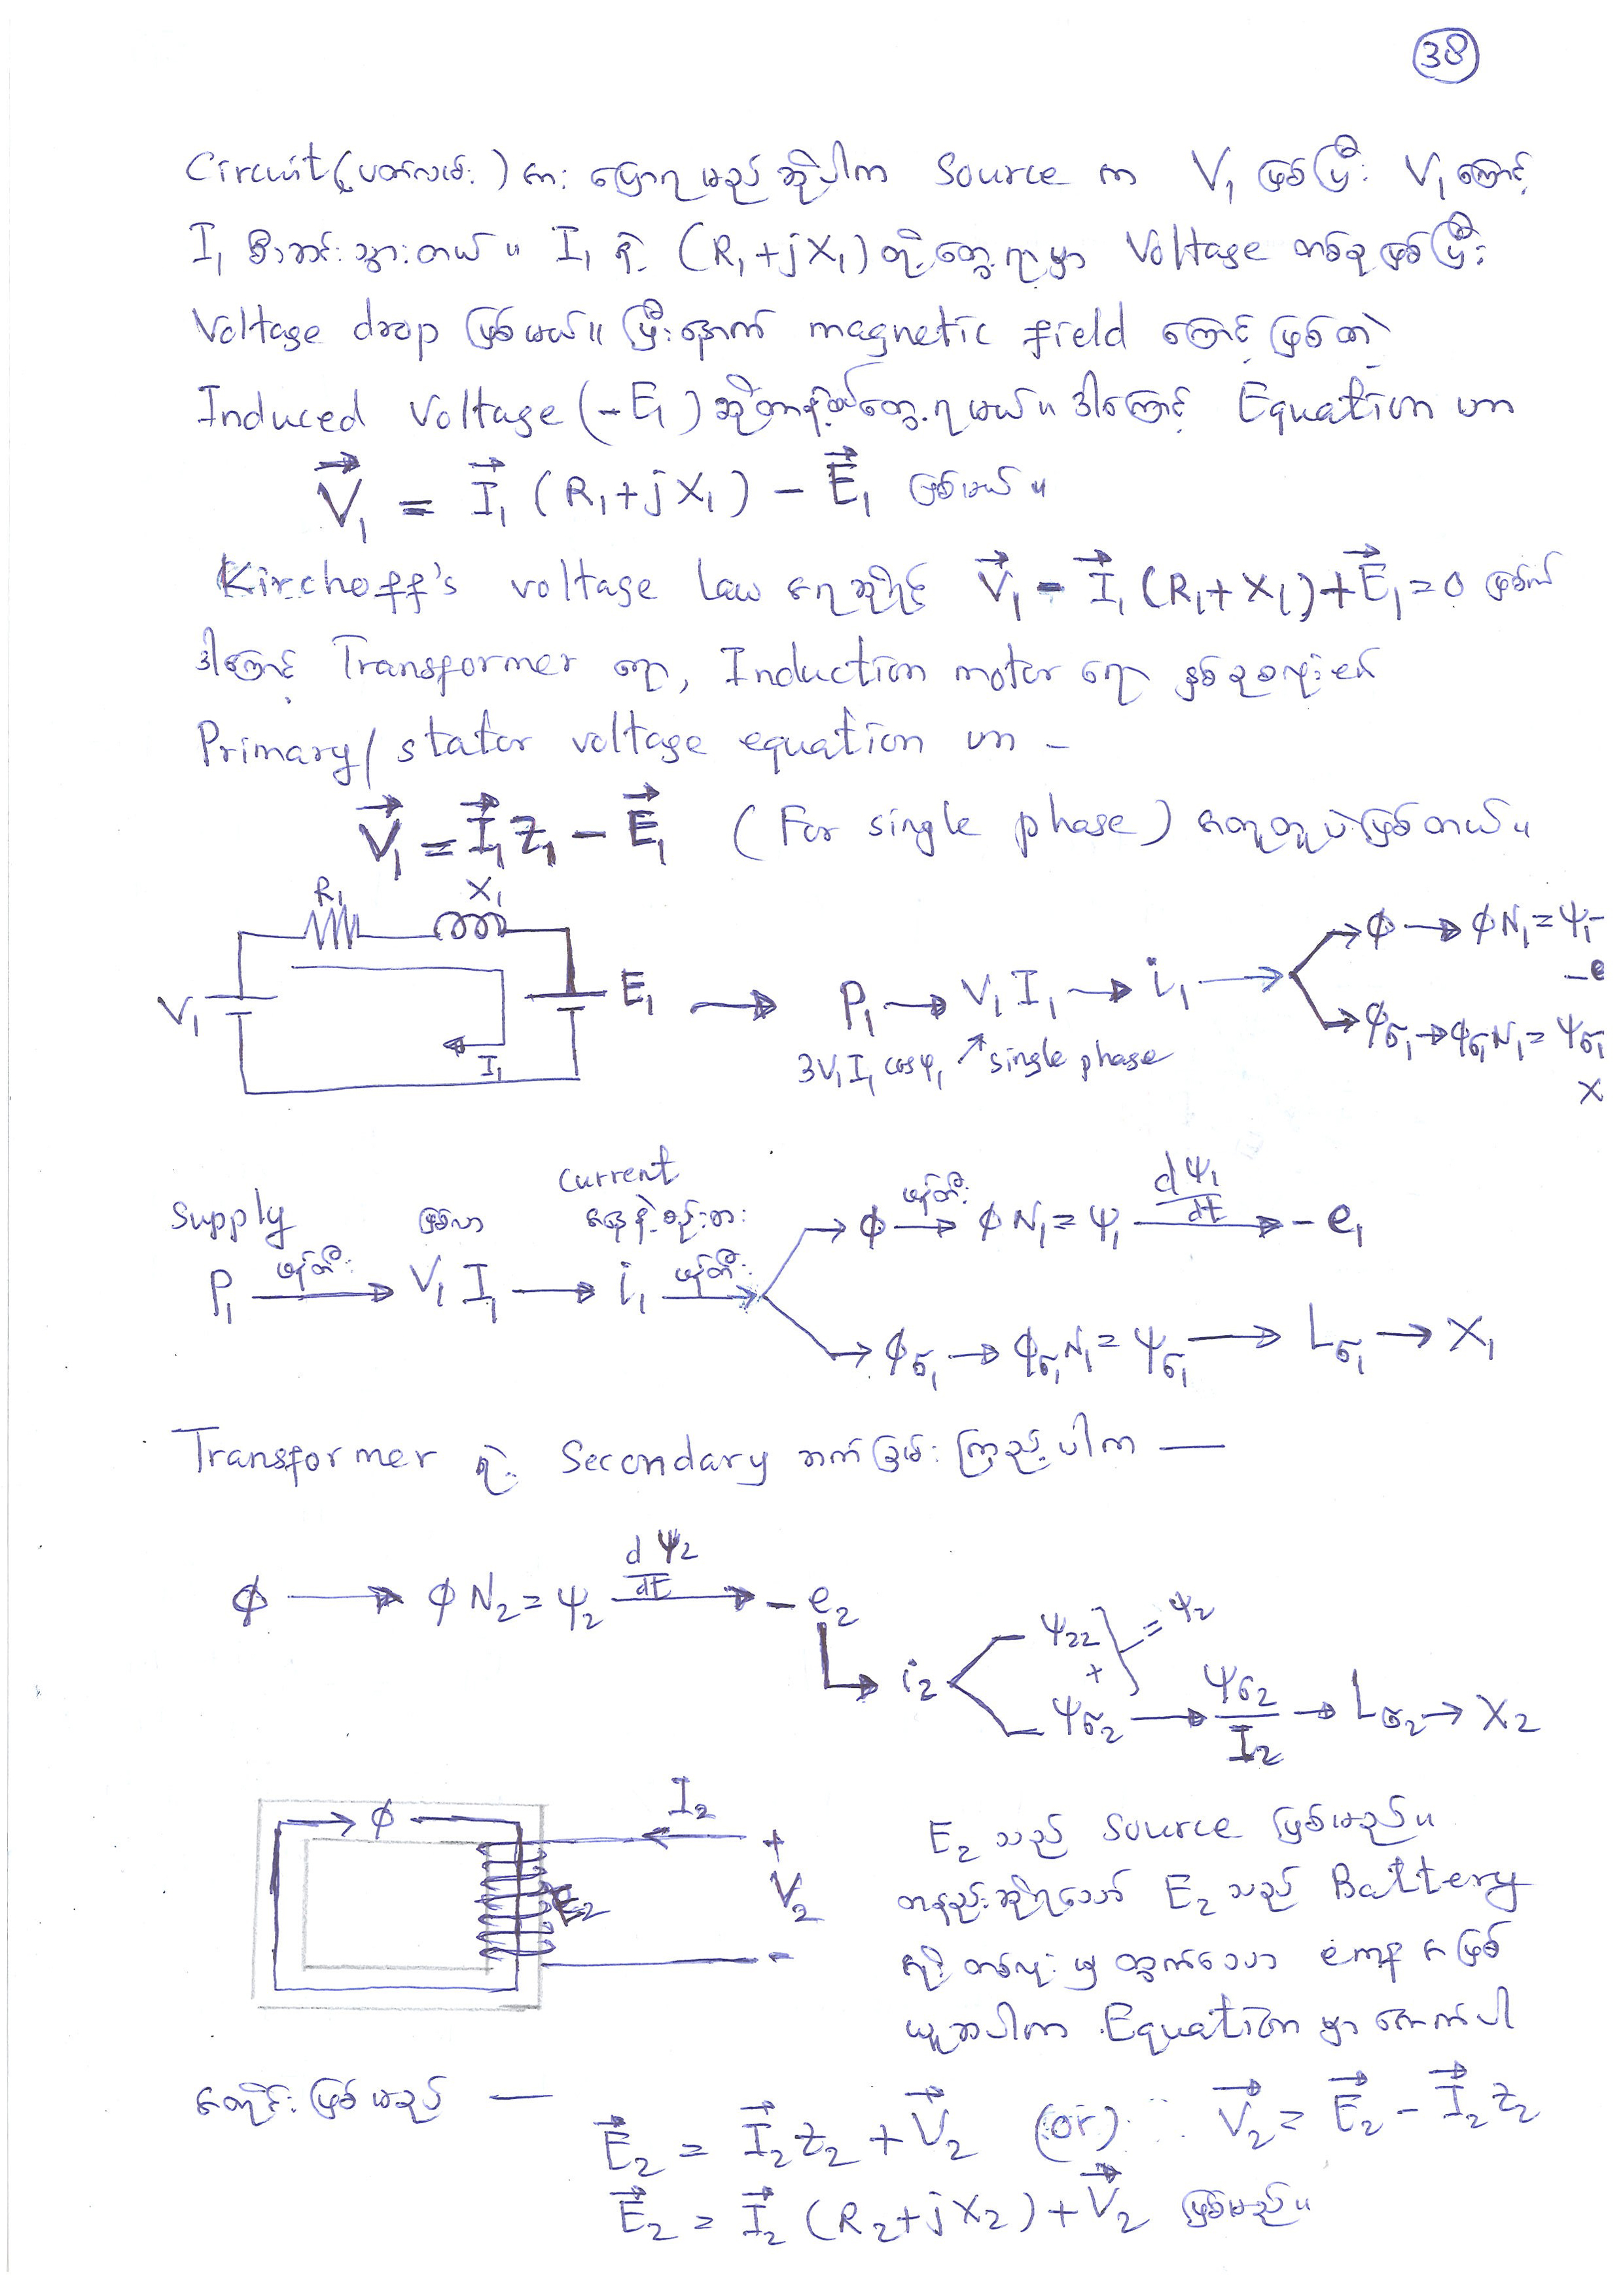 38
Circuit (ပတ်လမ်း) အား ပြောရမည်ဆိုပါက Source က V₁ ဖြစ်ပြီး V₁ ကြောင့်
I₁ စီးဆင်းသွားတယ်။ I₁ ရဲ့ (R₁+jX₁) တို့တွေ့ရာမှာ Voltage တစ်ခုဖြစ်ပြီး
Voltage drop ဖြစ်မယ်။ ပြီးနောက် magnetic field ကြောင့် ဖြစ်တဲ့
Induced Voltage (-E₁) ဆိုတာနဲ့ထပ်တွေ့ရမယ်။ ဒါကြောင့် Equation ဟာ
V⃗₁ = I⃗₁ (R₁+jX₁) - E⃗₁ ဖြစ်မယ်။
Kirchoff's voltage law အရဆိုရင် V⃗₁ - I⃗₁ (R₁+X₁) + E⃗₁ = 0 ဖြစ်မယ်
ဒါကြောင့် Transformer ရော, Induction motor ရော နှစ်ခုစလုံးရဲ့
Primary/stator voltage equation ဟာ -
V⃗₁ = I⃗₁ Z₁ - E⃗₁ (For single phase) အတူတူပဲဖြစ်တယ်။
R₁ X₁
V₁ I₁ E₁ → P₁ → V₁ I₁ → i₁ → ϕ → ϕN₁ = Ψ₁-
-e
ϕσ₁ → ϕσ₁N₁ = Ψσ₁
3V₁I₁ cosφ₁ ↗ single phase
X
Supply ဖြစ်လာ Current
P₁ ဖန်တီး → V₁ I₁ → i₁ ဖန်တီး →
ϕ ဖန်တီး → ϕN₁ = Ψ₁ dΨ₁/dt → -e₁
ϕσ₁ → ϕσ₁N₁ = Ψσ₁ → Lσ₁ → X₁
Transformer ရဲ့ Secondary ဘက်ခြမ်းကြည့်ပါက —
ϕ → ϕN₂ = Ψ₂ dΨ₂/dt → -e₂
i₂ Ψ₂₂ + Ψσ₂ } = Ψ₂
Ψσ₂ → Ψσ₂/I₂ → Lσ₂ → X₂
→ ϕ I₂
E₂ + V₂ -
E₂ သည် Source ဖြစ်မည်။
တနည်းဆိုရသော် E₂ သည် Battery
ယူဆပါက Equation မှာ အောက်ပါ
အတိုင်းဖြစ်မည် —
E⃗₂ = I⃗₂ Z₂ + V⃗₂ (or) V⃗₂ = E⃗₂ - I⃗₂ Z₂
E⃗₂ = I⃗₂ (R₂+jX₂) + V⃗₂ ဖြစ်မည်။